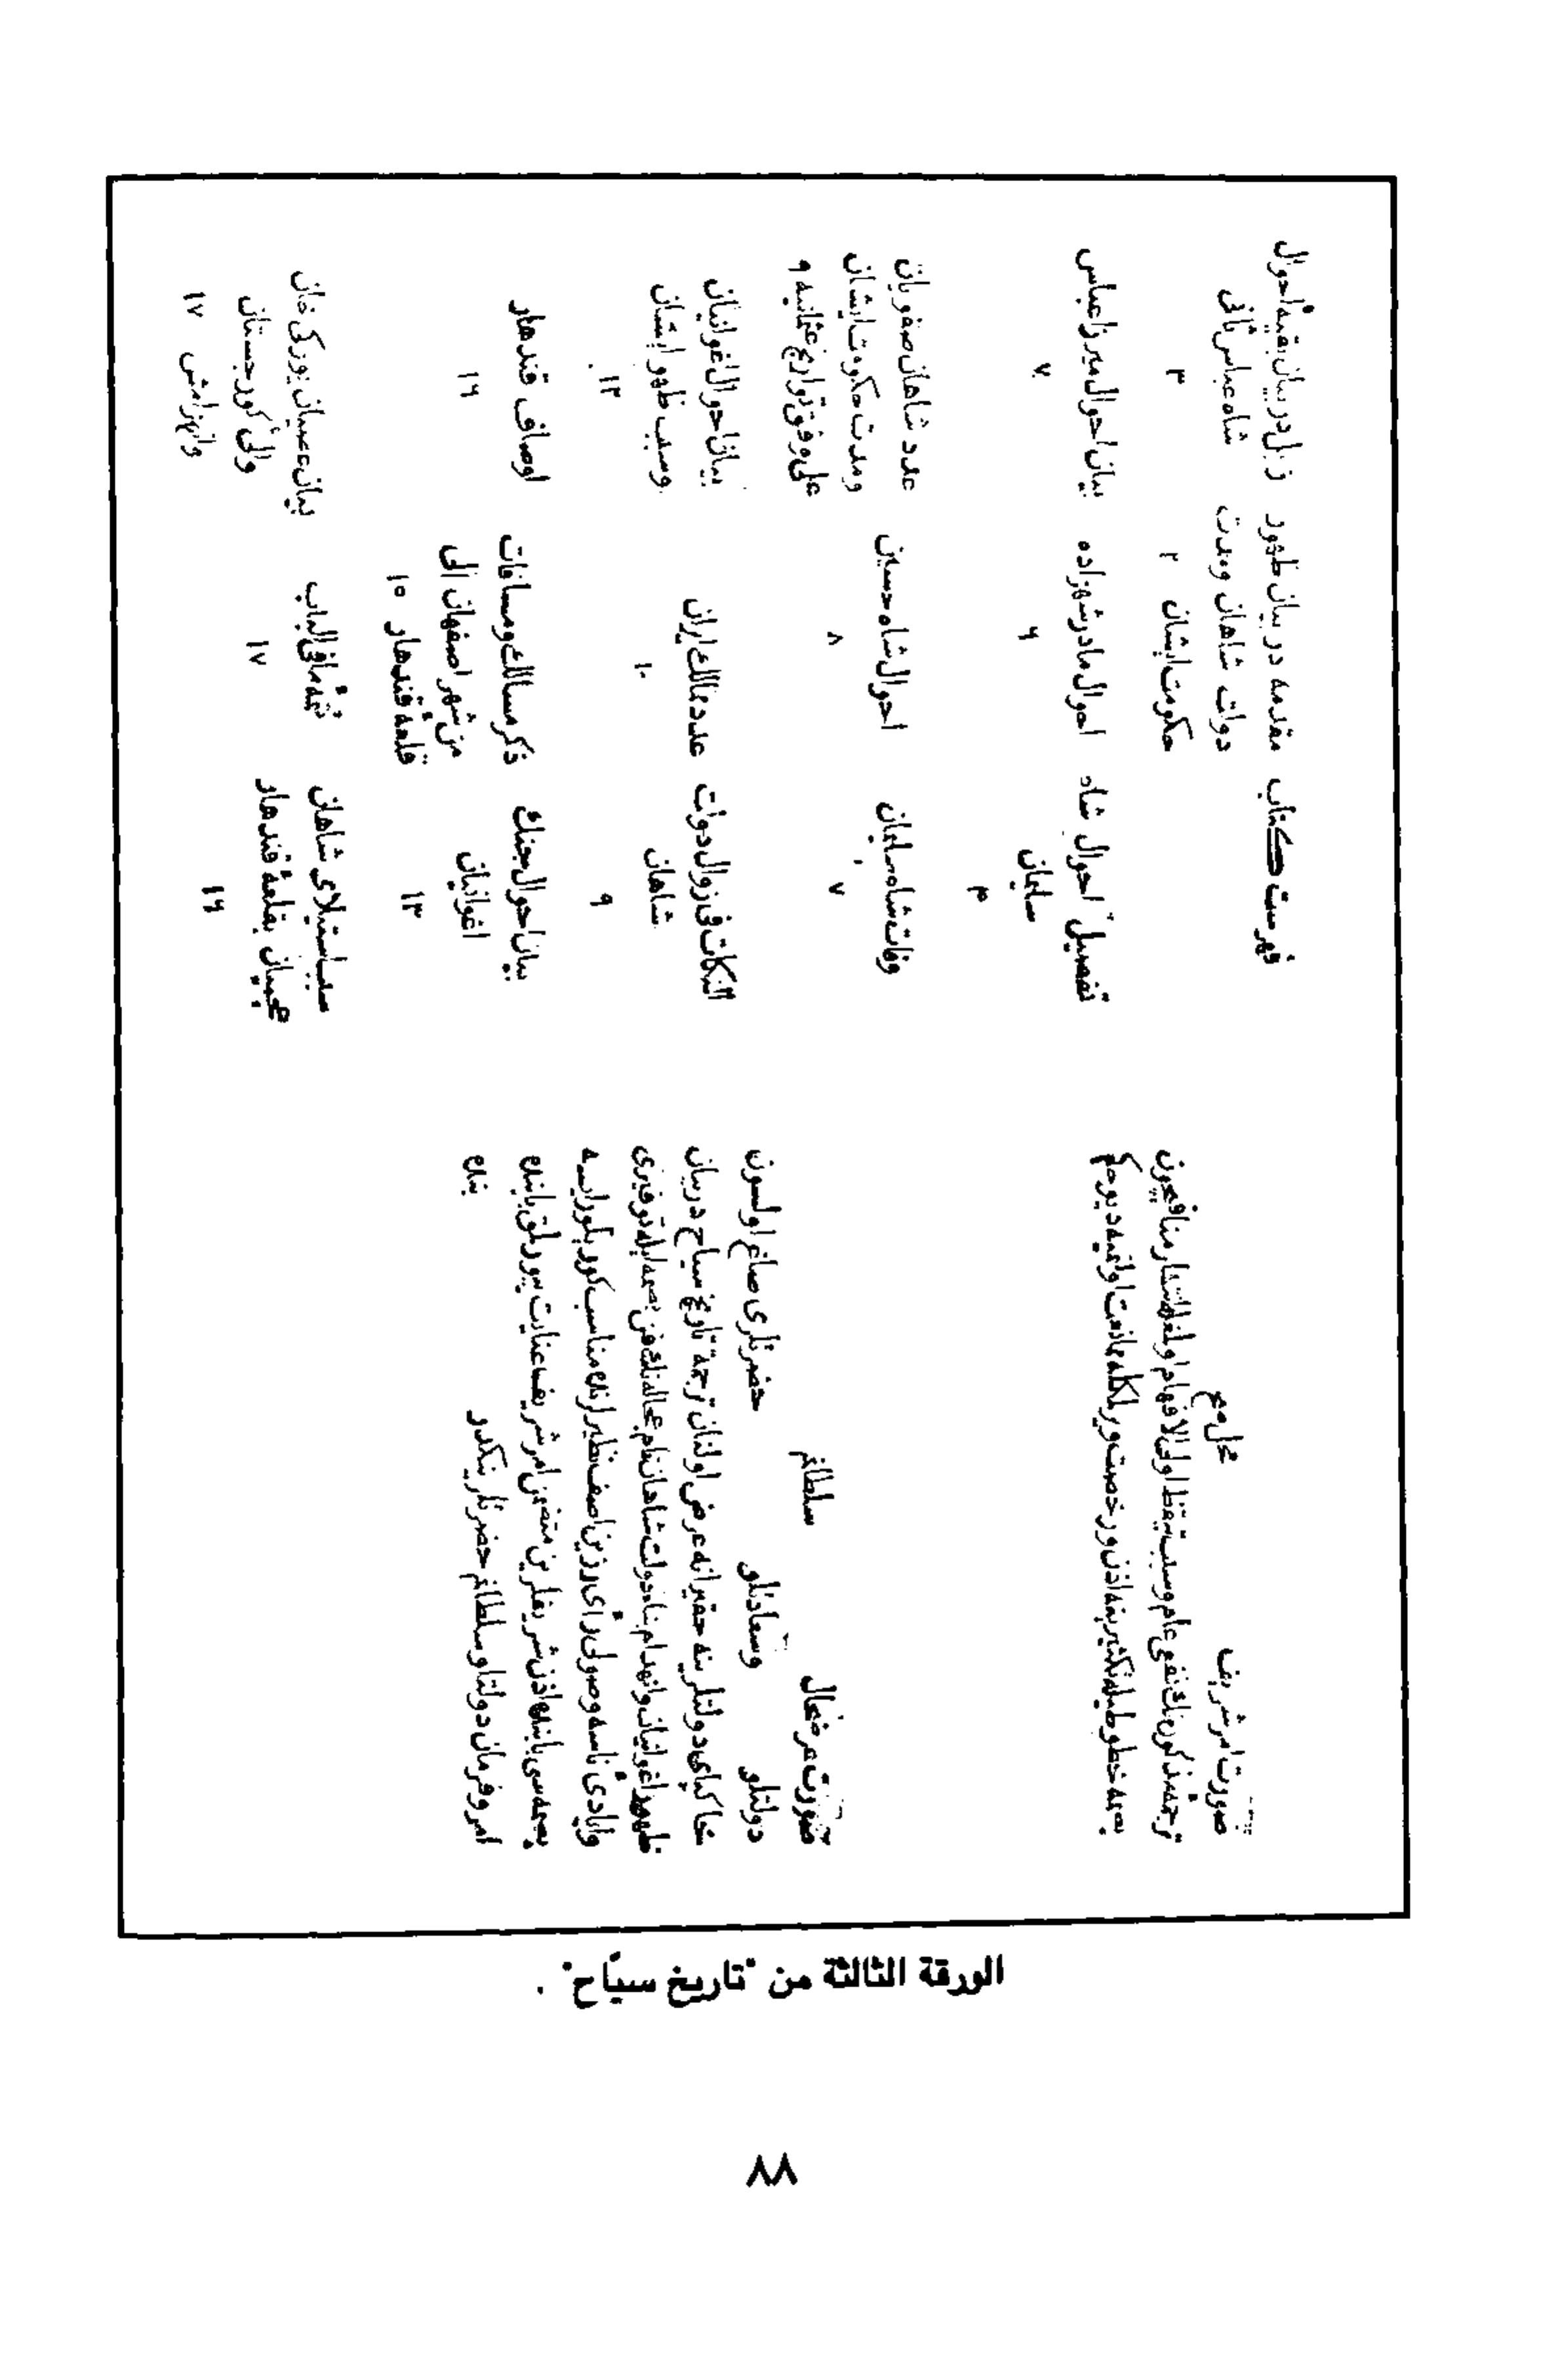 صورت امر شريف محل صح
ترجمهٔ مذكوره نك نفعى عام وسبب تيقظ اولى الافهام اولمغله انتشار منافعيچون
بصمه خطوطيله تكثيرينه اذن ورخصت ويرلكله ممانعت اولنميه ديو حكم
صورت عرضحال سلطانم
دولتلو وسعادتلو حضرتلرى صاغ اولسون
خاكپاى دولتلرينه حقيرانه عرض اولنان ترجمهٔ تاريخ سياح در بيان
ظهور اغوانيان وانهدام بناء دولت شاهان نام مجاله نك فن بصمه ايله توفيرى
وايادىٔ ناسه وصولى رأى رزين اصف نظيرلرنده مناسب كورلور ايسه
بصمه سى بابنده اذن شريفلرين متضمن امر شريف عنايت بيورلمق بابنده
امر وفرمان دولتلو سلطانم حضرتلرينكدر بنده
فهرست كتاب
مقدمه در بيان ظهور
دولت شاهان ومدت
حكومت ايشان ٢
ذيل در بيان بقيهٔ احوال
شاه عباس ثانى
٣
تفصيل احوال شاه
سليمان
٣
احوال مادر شهزاده
٦
بيان احوال ميرزا عباس
٧
وفات شاه سليمان
٧
احوال شاه حسين
٨
عدد شاهان صفويان
ومدت حكومت ايشان
على وفق تواريخ عثمانيه ٩
النكات فى زوال دولت
شاهان
٩
عدد ممالك ايران
١٠
بيان احوال اغوانيان
وسبب ظهور ايشان
١٢
بيان احوال جنك
اغوانيان
١٣
ذكر مسالك ومسافات
من شهر اصفهان الى
قلعهٔ قندهار ١٥
اوصاف قندهار
١٦
سبب استيلاى شاهان
عجميان بقلعهٔ قندهار
١٦
تتمهٔ مافى الباب
١٧
بيان عصيان يوركى خان
والىٔ كورجستان
وانهزامش ١٧
الورقة الثالثة من "تاريخ سيّاح" .
٨٨